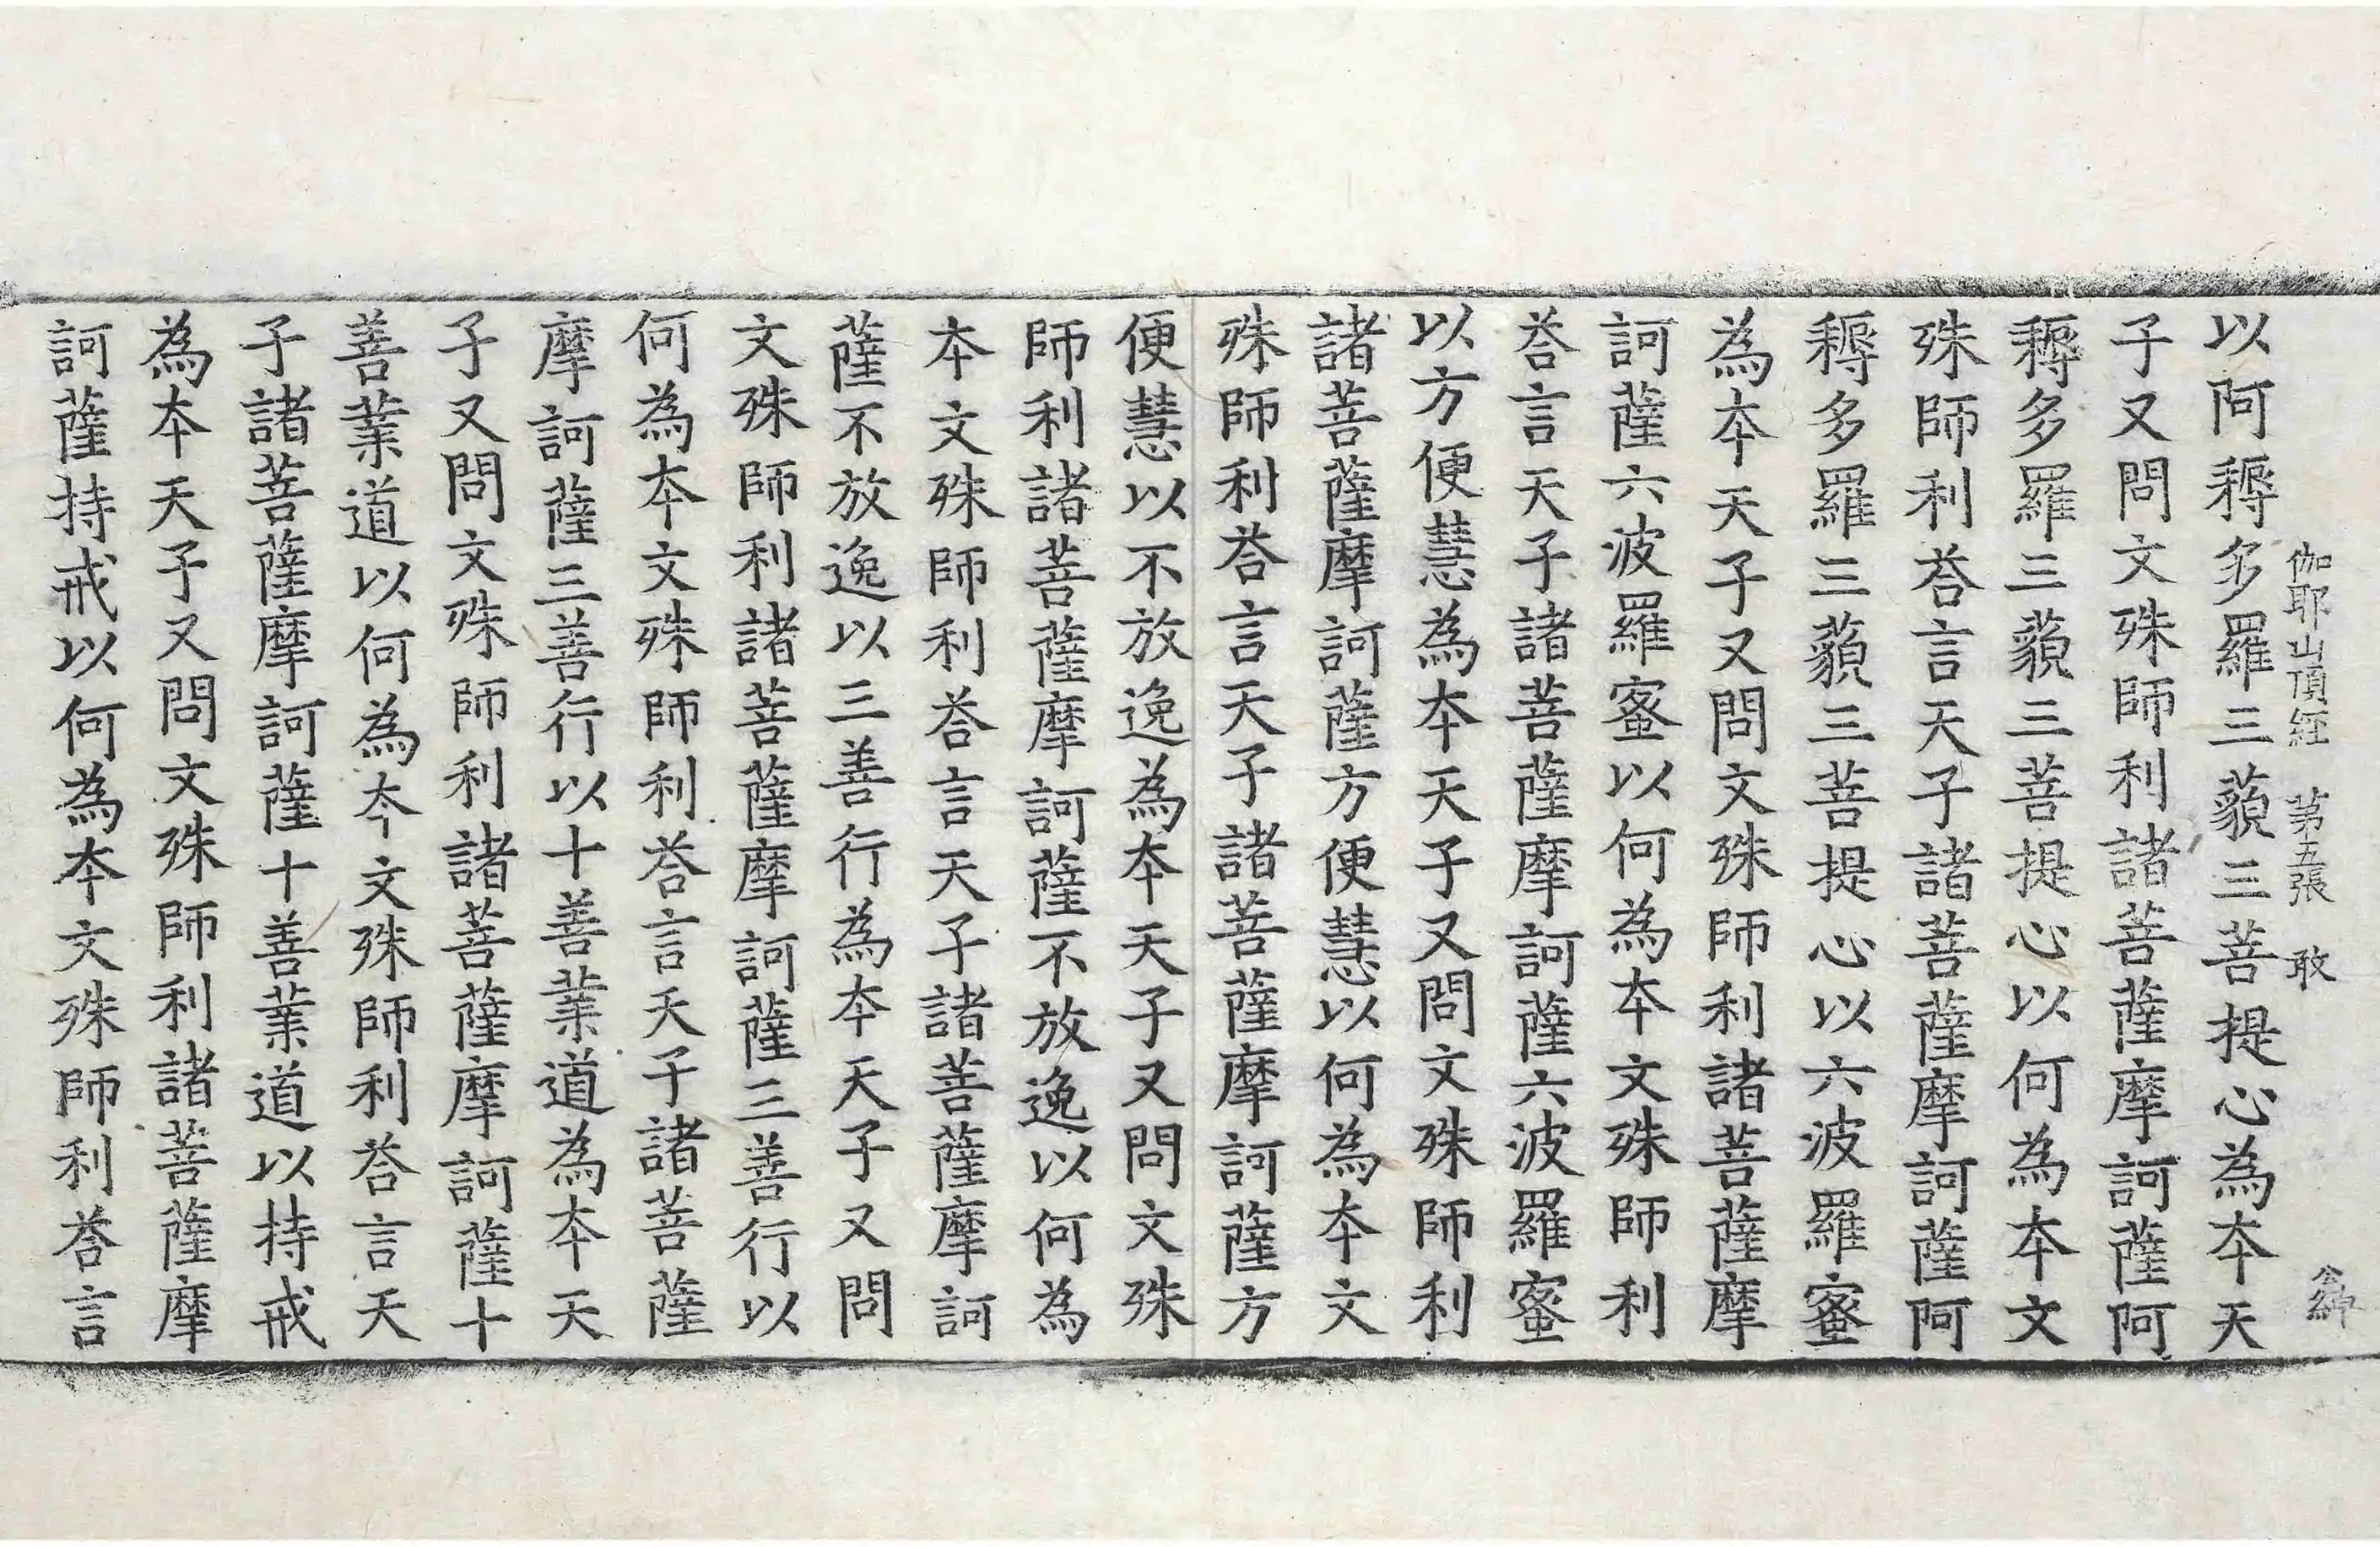 伽耶山頂經 第五張 敢
以阿耨多羅三藐三菩提心為本天
子又問文殊師利諸菩薩摩訶薩阿
耨多羅三藐三菩提心以何為本文
殊師利荅言天子諸菩薩摩訶薩阿
耨多羅三藐三菩提心以六波羅蜜
為本天子又問文殊師利諸菩薩摩
訶薩六波羅蜜以何為本文殊師利
荅言天子諸菩薩摩訶薩六波羅蜜
以方便慧為本天子又問文殊師利
諸菩薩摩訶薩方便慧以何為本文
殊師利荅言天子諸菩薩摩訶薩方
便慧以不放逸為本天子又問文殊
師利諸菩薩摩訶薩不放逸以何為
本文殊師利荅言天子諸菩薩摩訶
薩不放逸以三善行為本天子又問
文殊師利諸菩薩摩訶薩三善行以
何為本文殊師利荅言天子諸菩薩
摩訶薩三善行以十善業道為本天
子又問文殊師利諸菩薩摩訶薩十
善業道以何為本文殊師利荅言天
子諸菩薩摩訶薩十善業道以持戒
為本天子又問文殊師利諸菩薩摩
訶薩持戒以何為本文殊師利荅言